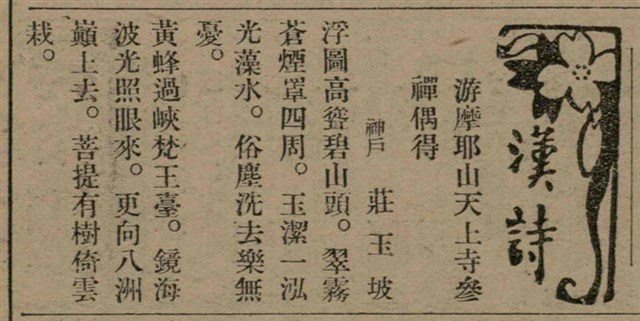 漢詩
游摩耶山天上寺參
禪偶得
神戶　莊玉坡
浮圖高聳碧山頭。翠霧
蒼煙罩四周。玉潔一泓
光藻水。俗塵洗去樂無
憂。
黃蜂過峽梵王臺。鏡海
波光照眼來。更向八洲
巔上去。菩提有樹倚雲
栽。